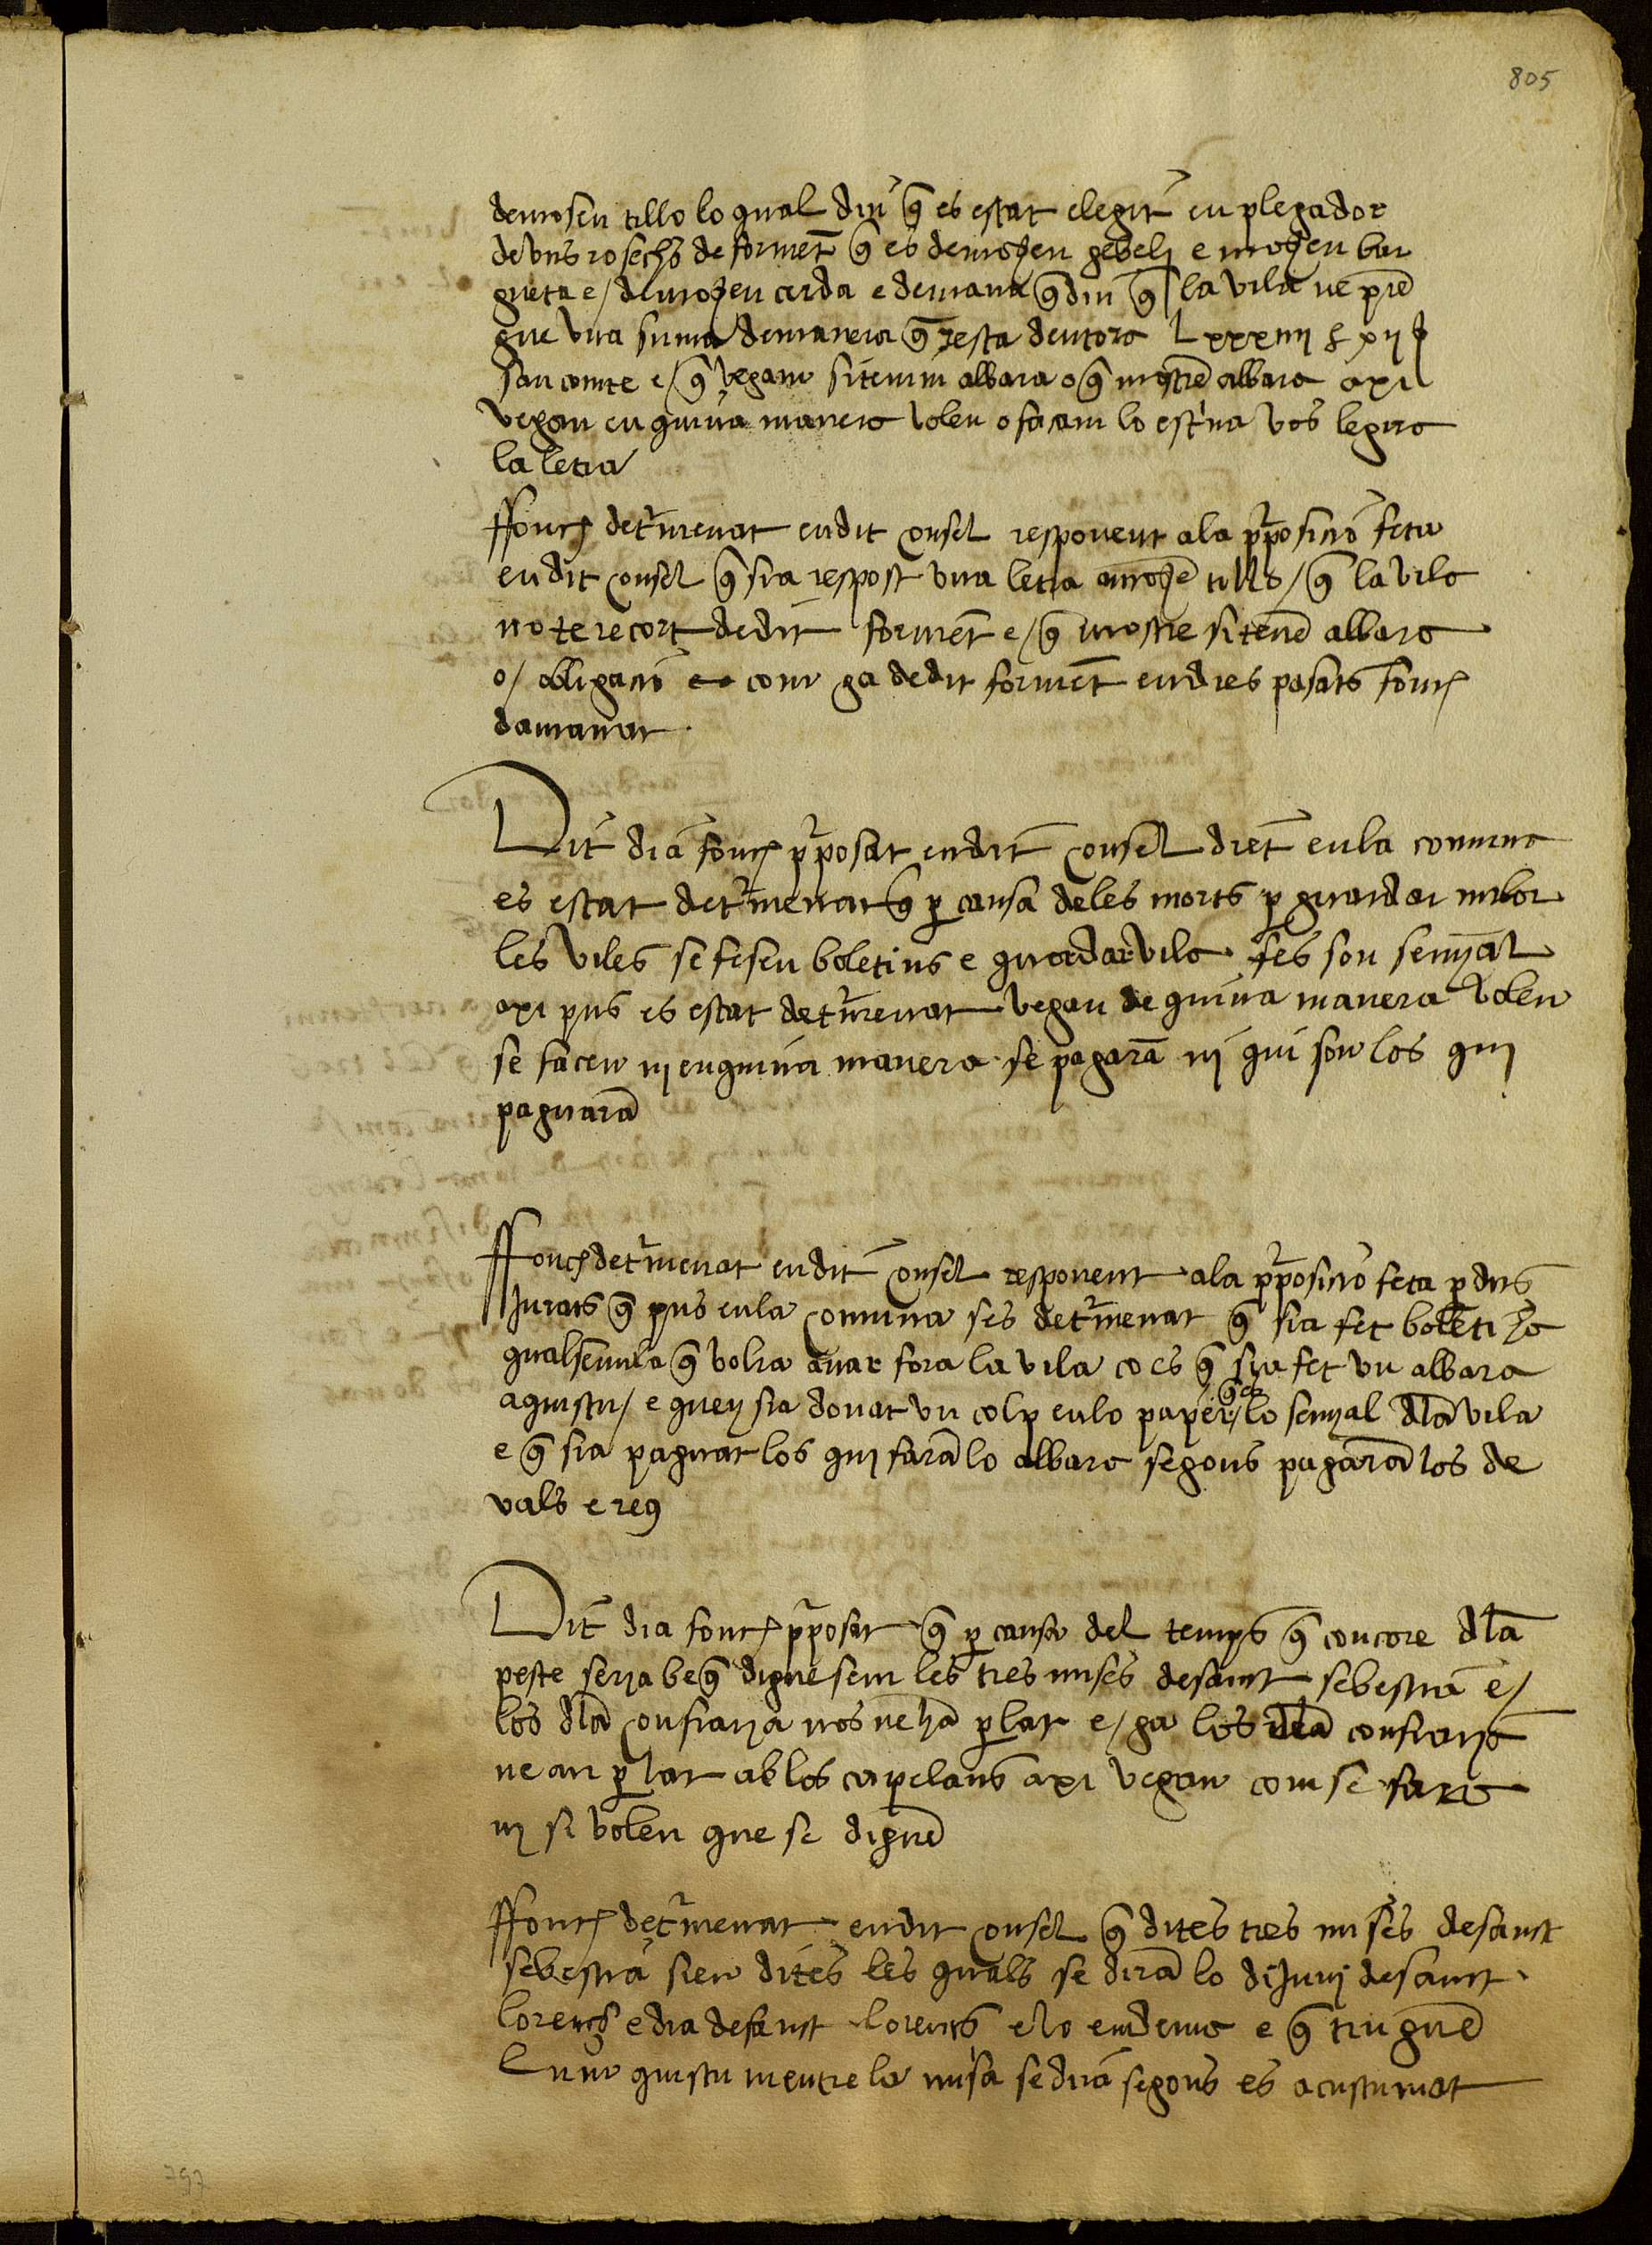 805
demosen tillo lo qual diu q̄ es estat elegit en plegador
de uns rosechs de forment̄ q̄ es demosen gebelj e mosen bar
gueta e / demosen cerda e demana q̄ diu q̄ la vila ne prē
gue una suma demanera q̄ resta deutora Lxxxiiij ß xij
san comte e / q̄ vegam si tenim albara o q̄ mostrē albara axi
vegau en quina manera volen o façam lo est na vos legira
la letra
ffonch det'menat en dit consel responent ala p'posicio feta
en dit consel q̄ sia respost una letra a mosē tillo / q̄ la vila
no te recort de dit forment̄ e / q̄ mostre si tenē albara
o / obligacio com ga de dit forment̄ en dies pasats fonch
damanat
Dit dia fonch p'posat en dit consel dient̄ en la comuna
es estat det'menat q̄ p causa de les morts p guardar milor
les viles se fesen boletins e guardar vila fes son senyal
axi pus es estat det'menat vegau de quina manera volen
se facen nj en quina manera se pagarā nj qui son los quj
paguarā
ffonch det'menat en dit consel responent ala p'posicio feta p dits
Jurats q̄ pus en la comuna ses det'menat q̄ sia fet boletí ha
qualsevulla q̄ volra anar fora la vila ço es q̄ sya fet vn albara
aquistu / e quey sia donat vn colp en lo paper / q̄ es lo senyal dla vila
e q̄ sia paguat los quj farā lo albara segons pagarā los de
vals e reg
Dit dia fonch p'posat q̄ p causa del temps q̄ concore dla
peste serja be q̄ diguesem les tres mises de sanct sebestia e /
los dla confraria nos ne hā p lat e / ga los dla confraria
ne an p lat ab los capelans axi vegau com se fara
nj si volen que se diguē
ffonch det'menat en dit consel q̄ dites tres mises de sanct
sebestia sien dites les quals se dirā lo diJunj de sanct
lorench e dia de sanct lorens e lo endema e q̄ tinguē
lum quistu mentre la misa se dira segons es acustumat
797